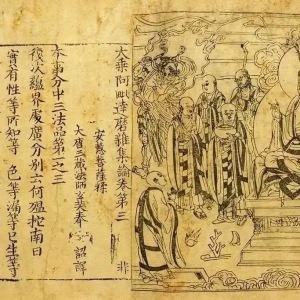 大乘阿毗達磨雜集論卷第三 非
安慧菩薩糅
大唐三藏法師玄奘奉 詔譯
本事分中三法品第一之三
復次蘊界處廣分別云何嗢拕南曰
實有性等所知等 色等漏等已生等